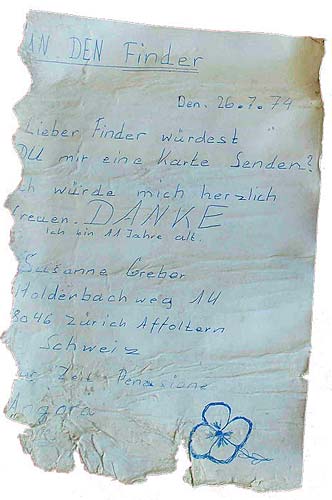 AN DEN Finder
Den. 26.7.74
Lieber Finder würdest
DU mir eine Karte Senden?
ch würde mich herzlich
freuen. DANKE
ich bin 11 Jahre alt.
Susanne Greber
Holderbachweg 14
8046 Zürich Affoltern
Schweiz
ur Zeit Pensione
Angora